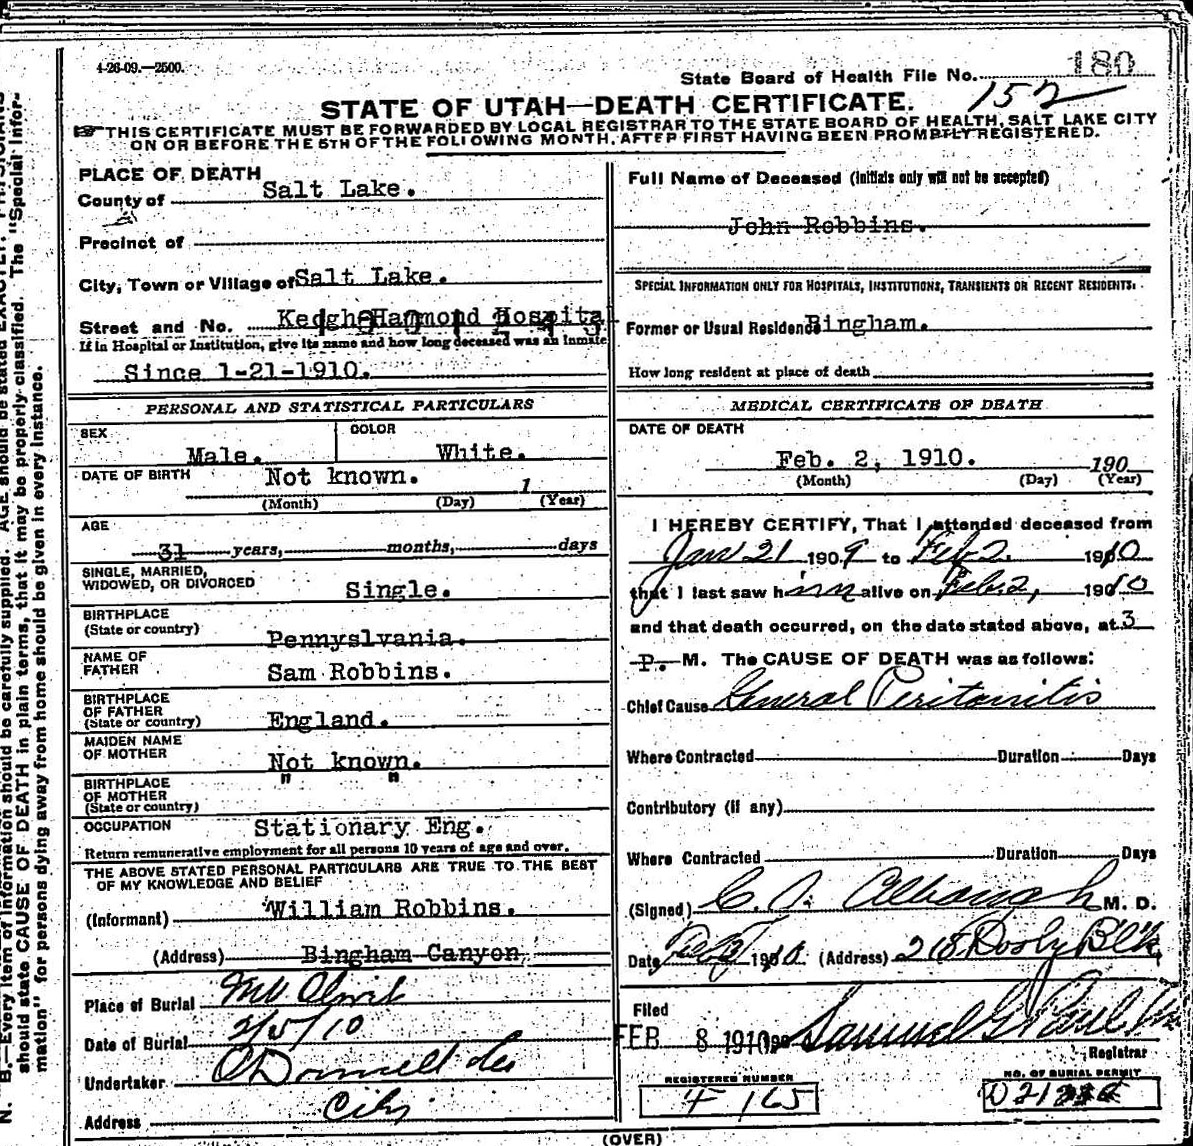 4-26-09.—2500.
State Board of Health File No. 180
152
STATE OF UTAH—DEATH CERTIFICATE.
THIS CERTIFICATE MUST BE FORWARDED BY LOCAL REGISTRAR TO THE STATE BOARD OF HEALTH, SALT LAKE CITY
ON OR BEFORE THE 5TH OF THE FOLLOWING MONTH, AFTER FIRST HAVING BEEN PROMPTLY REGISTERED.
PLACE OF DEATH
County of Salt Lake.
Precinct of
City, Town or Village of Salt Lake.
Street and No. Keogh-Hammond Hospital
If in Hospital or Institution, give its name and how long deceased was an inmate
Since 1-21-1910.
PERSONAL AND STATISTICAL PARTICULARS
SEX Male.
COLOR White.
DATE OF BIRTH Not known. 1
(Month) (Day) (Year)
AGE
31 years, months, days
SINGLE, MARRIED,
WIDOWED, OR DIVORCED Single.
BIRTHPLACE
(State or country) Pennyslvania.
NAME OF
FATHER Sam Robbins.
BIRTHPLACE
OF FATHER
(State or country) England.
MAIDEN NAME
OF MOTHER Not known.
BIRTHPLACE " "
OF MOTHER
(State or country)
OCCUPATION Stationary Eng.
Return remunerative employment for all persons 10 years of age and over.
THE ABOVE STATED PERSONAL PARTICULARS ARE TRUE TO THE BEST
OF MY KNOWLEDGE AND BELIEF
(Informant) William Robbins.
(Address) Bingham Canyon,
Place of Burial Mt Olivet
Date of Burial 2/5/10
Undertaker O'Donnell Co
Address City
Full Name of Deceased (Initials only will not be accepted)
John Robbins.
SPECIAL INFORMATION ONLY FOR HOSPITALS, INSTITUTIONS, TRANSIENTS OR RECENT RESIDENTS:
Former or Usual Residence Bingham.
How long resident at place of death
MEDICAL CERTIFICATE OF DEATH
DATE OF DEATH
Feb. 2, 1910. 190
(Month) (Day) (Year)
I HEREBY CERTIFY, That I attended deceased from
Jan 21 1909 to Feb 2. 1910
that I last saw him alive on Feb. 2, 1910
and that death occurred, on the date stated above, at 3
P. M. The CAUSE OF DEATH was as follows:
Chief Cause General Peritonitis
Where Contracted Duration Days
Contributory (if any)
Where Contracted Duration Days
(Signed) M. D.
Date 1910 (Address) 218 Dooly Blk
Filed
FEB 8 1910 190 Samuel G Paul
Registrar
REGISTERED NUMBER
F 165
NO. OF BURIAL PERMIT
(OVER)
N. B.—Every item of information should be carefully supplied. AGE should be stated EXACTLY. PHYSICIANS
should state CAUSE OF DEATH in plain terms, that it may be properly classified. The "Special Infor-
mation" for persons dying away from home should be given in every instance.